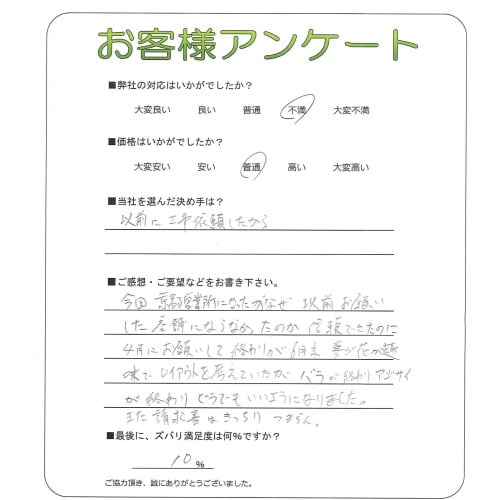 お客様アンケート
■弊社の対応はいかがでしたか？
大変良い 良い 普通 不満 大変不満
■価格はいかがでしたか？
大変安い 安い 普通 高い 大変高い
■当社を選んだ決め手は？
以前に工事依頼したから
■ご感想・ご要望などをお書き下さい。
今回 京都営業所になったがなぜ 以前お願い
した店舗にならなかったのか 信頼できたのに
4月にお願いして 終わりが6月末 妻が花が趣
味で レイアウトを考えていたが バラが終わり アジサイ
が終わり どうでもいいようになりました。
また請求書はきっちり
■最後に、ズバリ満足度は何％ですか？
10 %
ご協力頂き、誠にありがとうございました。